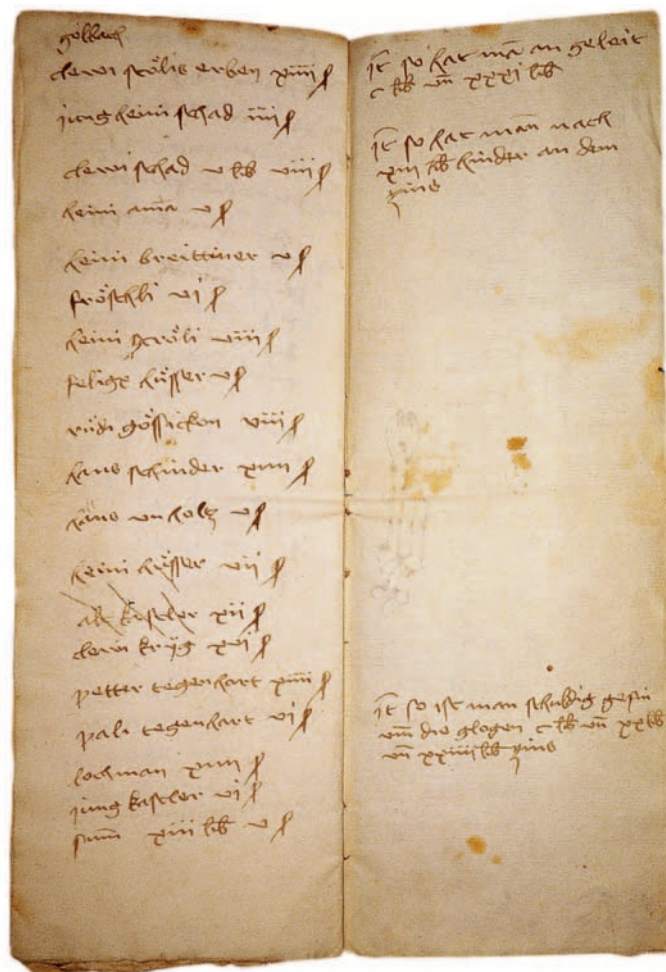 golbach
clewi stölis erben xiiii ß
jung heini schad iiii ß
clewi schad v lib viii ß
heini ama v ß
heini breittiner v ß
fröschli vi ß
heini gröli viii ß
felige hüsser v ß
rüdi gössickon viii ß
hans schinder xiiii ß
hans vn holtz v ß
heini hüsser vii ß
alt kaseler xii ß
clewi krÿg xvi ß
petter tegenhart xiiii ß
pali tegenhart vi ß
lochman xiiii ß
jung kaseler vi ß
sum xiii lib v ß
it so hat ma an geleit
c lib vn xxxi lib
it so hat man nach
xiii lib hinder an dem
zins
it so ist man schuldig gesin
vm die glogen c lib vn xx lib
vn xxiiii lib zins